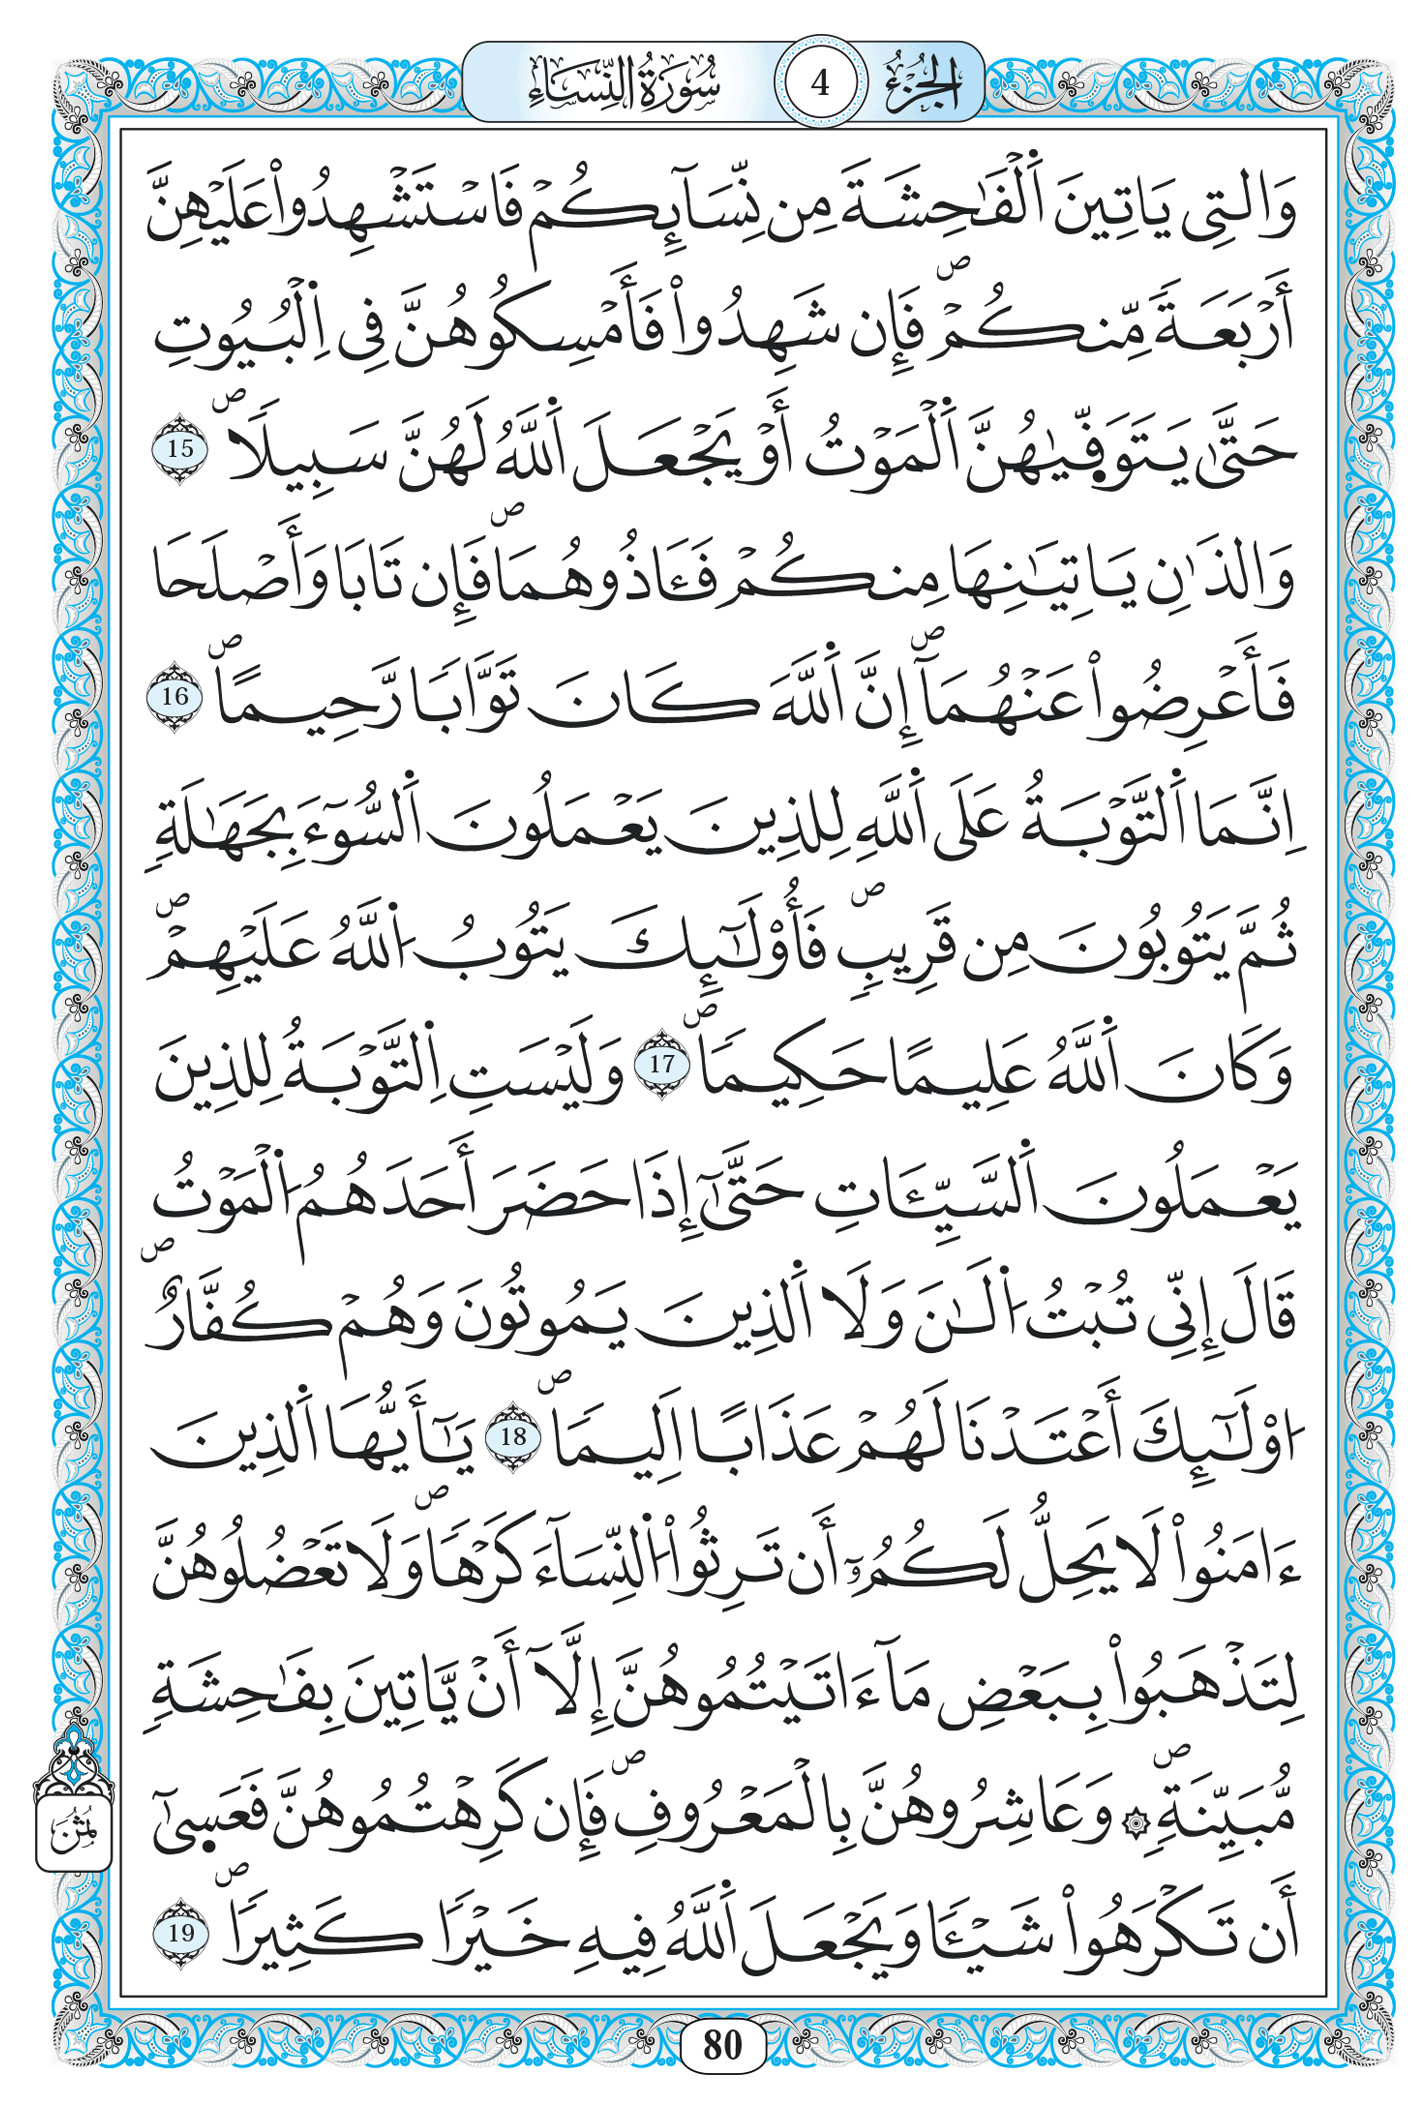 الجزء 4 سورة النساء
وَالتِے يَاتِينَ اَ۬لْفَٰحِشَةَ مِن نِّسَآئِكُمْ فَاسْتَشْهِدُواْ عَلَيْهِنَّ
أَرْبَعَةَ مِّنكُمْۖ فَإِن شَهِدُواْ فَأَمْسِكُوهُنَّ فِے اِ۬لْبُيُوتِ
حَتَّىٰ يَتَوَفّ۪يٰهُنَّ اَ۬لْمَوْتُ أَوْ يَجْعَلَ اَ۬للَّهُ لَهُنَّ سَبِيلَاۖ 15
وَالذَٰنِ يَاتِيَٰنِهَا مِنكُمْ فَـَٔاذُوهُمَاۖ فَإِن تَابَا وَأَصْلَحَا
فَأَعْرِضُواْ عَنْهُمَآۖ إِنَّ اَ۬للَّهَ كَانَ تَوَّابَا رَّحِيمًاۖ 16
اِنَّمَا اَ۬لتَّوْبَةُ عَلَى اَ۬للَّهِ لِلذِينَ يَعْمَلُونَ اَ۬لسُّوٓءَ بِجَهَٰلَةِ
ثُمَّ يَتُوبُونَ مِن قَرِيبِۖ فَأُوْلَٰٓئِكَ يَتُوبُ اُ۬للَّهُ عَلَيْهِمْۖ
وَكَانَ اَ۬للَّهُ عَلِيمًا حَكِيمَاۖ 17 وَلَيْسَتِ اِ۬لتَّوْبَةُ لِلذِينَ
يَعْمَلُونَ اَ۬لسَّيِّـَٔاتِ حَتَّىٰٓ إِذَا حَضَرَ أَحَدَهُمُ اُ۬لْمَوْتُ
قَالَ إِنِّے تُبْتُ اُ۬لَٰنَ وَلَا اَ۬لذِينَ يَمُوتُونَ وَهُمْ كُفَّارٌۖ
اُوْلَٰٓئِكَ أَعْتَدْنَا لَهُمْ عَذَابًا اَلِيمَاۖ 18 يَٰٓأَيُّهَا اَ۬لذِينَ
ءَامَنُواْ لَا يَحِلُّ لَكُمُۥٓ أَن تَرِثُواْ اُ۬لنِّسَآءَ كَرْهَاۖ وَلَا تَعْضُلُوهُنَّ
لِتَذْهَبُواْ بِبَعْضِ مَآ ءَاتَيْتُمُوهُنَّ إِلَّآ أَنْ يَّاتِينَ بِفَٰحِشَةِ
مُّبَيِّنَةِۖ ۞ وَعَاشِرُوهُنَّ بِالْمَعْرُوفِۖ فَإِن كَرِهْتُمُوهُنَّ فَعَس۪ىٰٓ
أَن تَكْرَهُواْ شَيْـَٔا وَيَجْعَلَ اَ۬للَّهُ فِيهِ خَيْرَا كَثِيرَاۖ 19
ثُمُن
80